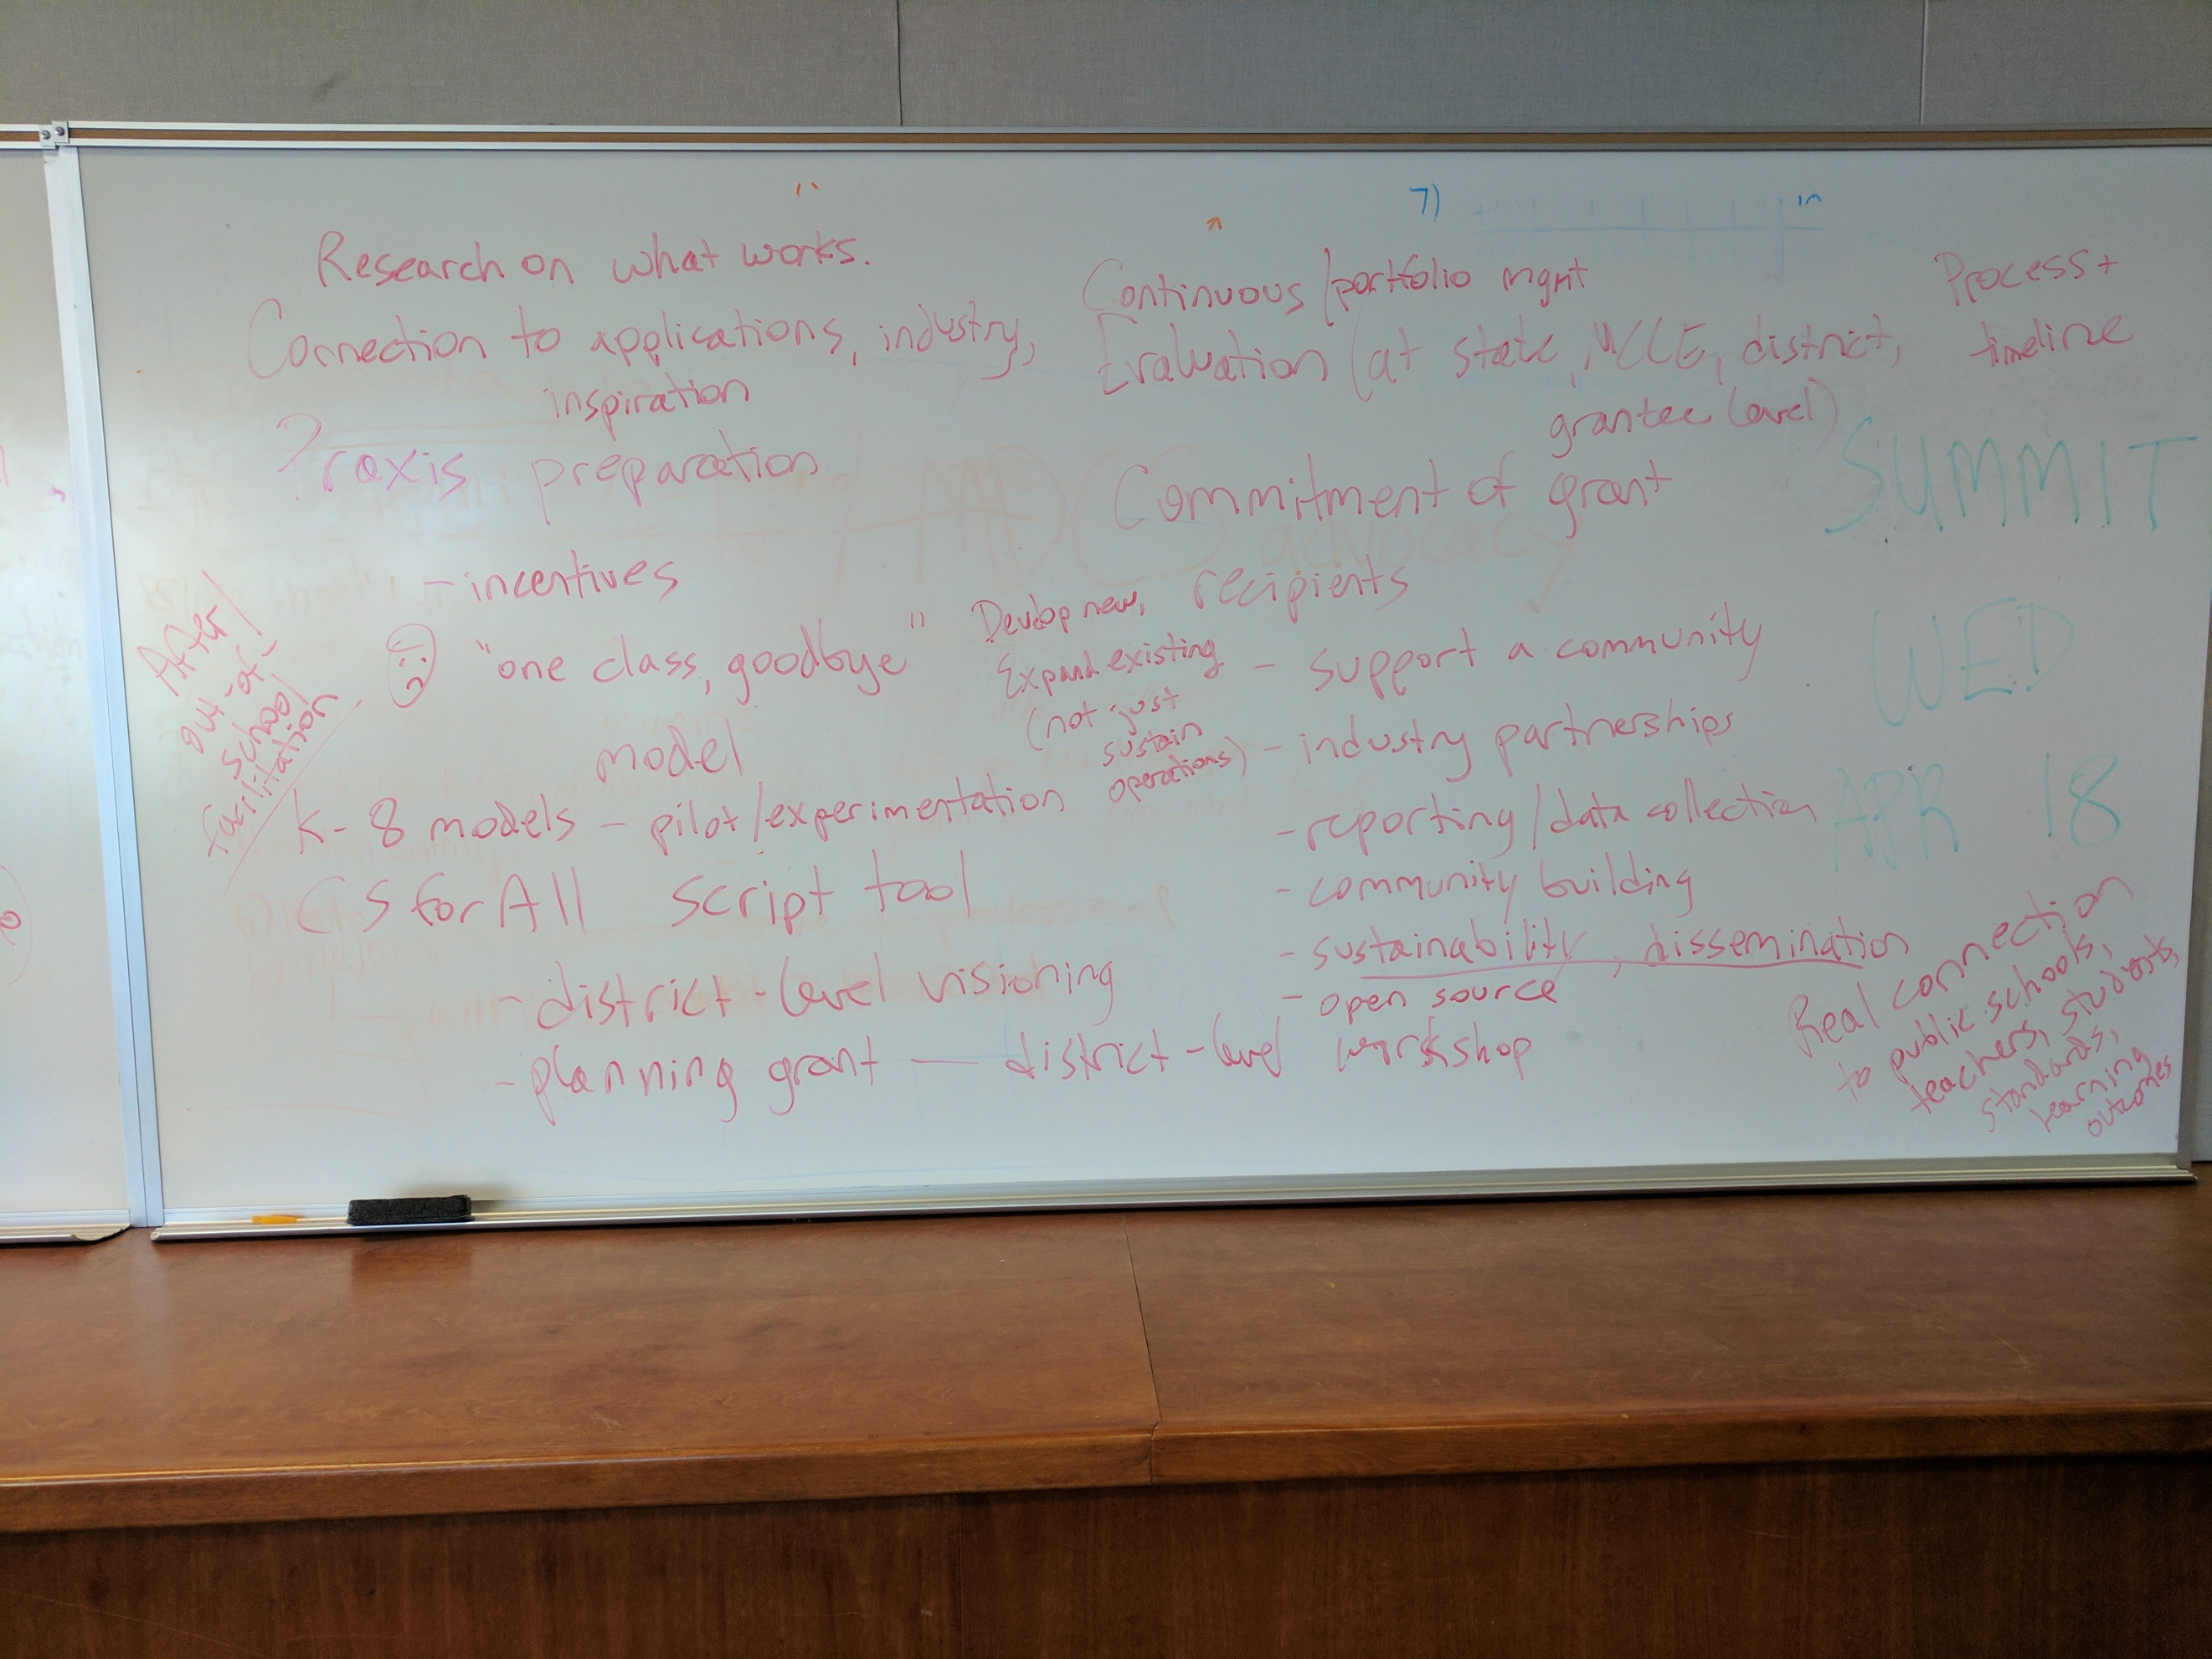 Research on what works.
Connection to applications, industry,
inspiration
Praxis preparation
- incentives
"one class, goodbye"
model
After/
out-of-
school
facilitation
K-8 models - pilot/experimentation
CSforAll Script tool
- district-level visioning
- planning grant — district-level workshop
7)
Continuous/portfolio mgmt
Evaluation (at state, MCCE, district,
grantee level)
Commitment of grant
recipients
Develop new,
Expand existing
(not just
sustain
operations)
- support a community
- industry partnerships
- reporting/data collection
- community building
- sustainability, dissemination
- open source
Process +
timeline
SUMMIT
WED
APR 18
Real connection
to public schools,
teachers, students,
standards,
learning
outcomes
MDCS
advocacy